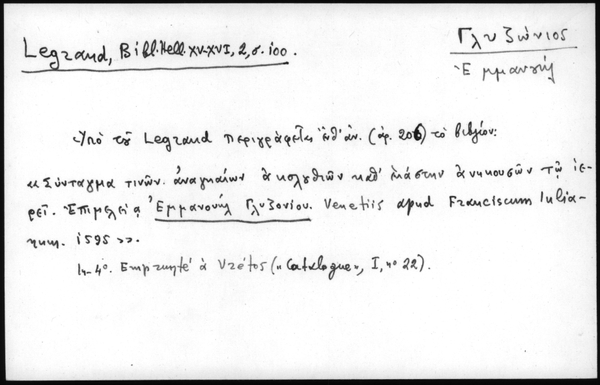 Legrand, Bibl. Hell. XV-XVI, 2, σ. 100.
Γλυζώνιος
Ἐμμανουήλ
Ὑπὸ τοῦ Legrand περιγράφεται ἐνθ' ἀν. (ἀρ. 206) τὸ βιβλίον:
«Σύνταγμα τινῶν ἀναγκαίων ἀκολουθιῶν καθ' ἑκάστην ἀνηκουσῶν τῷ ἱε-
ρεῖ. Ἐπιμελείᾳ Ἐμμανουήλ Γλυζονίου. Venetiis apud Franciscum Iulia-
num. 1595».
In-4º. Emprunté à Vrétos («Catalogue», I, nº 22).